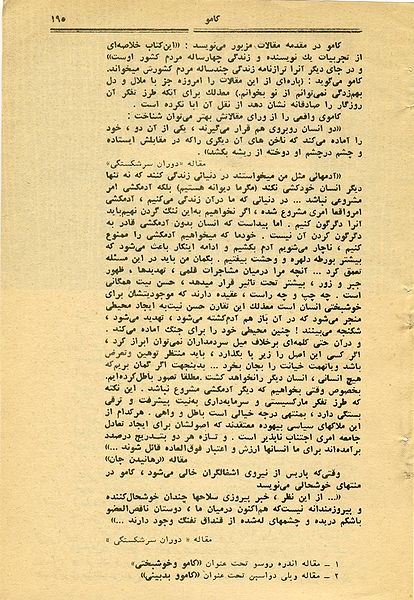 کامو
۱۹۵
کامو در مقدمه مقالات مزبور می‌نویسد : ((این‌کتاب خلاصه‌ای
از تجربیات یك نویسنده و زندگی چهارساله مردم کشور اوست))
و در جای دیگر آنرا ترازنامه زندگی چندساله مردم کشورش میخواند.
کامو میگوید : (پاره‌ای از این مقالات را امروزه جز با ملال و دل
بهم‌زدگی نمی‌توانم از نو بخوانم.) معذلك برای آنکه طرز فکر آن
روزگار را صادقانه نشان دهد از نقل آن ابا نکرده است .
کاموی واقعی را از ورای مقالاتش بهتر می‌توان شناخت :
((دو انسان روبروی هم قرار می‌گیرند ، یکی از آن دو ، خود
را آماده می‌کند که ناخن های آن دیگری راکه در مقابلش ایستاده
و چشم درچشم او دوخته از ریشه بکشد)) .
مقاله «دوران سرشکستگی»
((آدمهائی مثل من میخواستند در دنیائی زندگی کنند که نه تنها
دیگر انسان خودکشی نکند (مگرما دیوانه هستیم) بلکه آدمکشی امر
مشروعی نباشد ... در دنیائی که ما درآن زندگی می‌کنیم ، آدمکشی
امرواقفا امری مشروع شده ، اگر نخواهیم به‌این ننگ گردن نهیم‌باید
آنرا دگرگون کنیم . اما پیداست که انسان بدون آدمکشی قادر به
دگرگون کردن آن نیست . خودما که میخواهیم آدمکشی را ممنوع
کنیم ، ناچار می‌شویم آدم بکشیم و ادامه اینکار باعث می‌شود که
بیشتر بورطه دلهره و وحشت بیفتیم . بگمان من باید در این مسئله
تعمق کرد ... آنچه مرا درمیان مشاجرات قلمی ، تهدیدها ، ظهور
جبر و زور ، بیشتر تحت تاثیر قرار میدهد ، حسن نیت همگانی
است . چه چپ و چه راست ، عقیده دارند که موجودیتشان برای
خوشبختی انسان است معذلك این تقارن حسن نیت‌به ایجاد محیطی
منجر می‌شود که در آن باز هم آدم‌کشته می‌شود ، تهدید می‌شود ،
شکنجه می‌بیند ! چنین محیطی خود را برای جنگ آماده می‌کند.
و درآن حتی کلمه‌ای برخلاف میل سردمداران نمی‌توان ابراز کرد ،
اگر کسی این اصل را زیر پا بگذارد ، باید منتظر توهین وتعرض
باشد وباتهمت خیانت را بجان بخرد ... بدینجهت اگر گمان بریم‌که
هیچ انسانی ، انسان دیگر رانخواهد کشت.مطلقا تصور باطل‌کرده‌ایم.
بخصوص وقتی بخواهیم که دیگر آدمکشی مشروع نباشد . این نکته
که طرز تفکر مارکسیستی و سرمایه‌داری به‌نیت پیشرفت و ترقی
بستگی دارد ، بمنتهی درجه خیالی است باطل و واهی . هرکدام از
این ملاکهای سیاسی بیهوده معتقدند که اصولشان برای ایجاد تعادل
جامعه امری اجتناب ناپذیر است . و تازه هر دو بتدریج درصدد
برآمده‌اند برای ما انسانها ارزش و اعتبار فوق‌العاده قائل شوند ...))
مقاله «رهانیدن جان»
وقتی‌که پاریس از نیروی اشغالگران خالی می‌شود ، کامو در
منتهای خوشحالی می‌نویسد
((... از این نظر ، خبر پیروزی سلاحها چندان خوشحال‌کننده
و پیروزمندانه نیست‌که هم‌اکنون درمیان ما ، دوستان ناقص‌العضو
باشکم دریده و چشمهای له‌شده از قنداق تفنگ وجود دارند ...))
مقاله « دوران سرشکستگی »
۱ – مقاله اندره روسو تحت عنوان ((کامو وخوشبختی))
۲ – مقاله ویلی دواسپن تحت عنوان ((کاموو بدبینی))